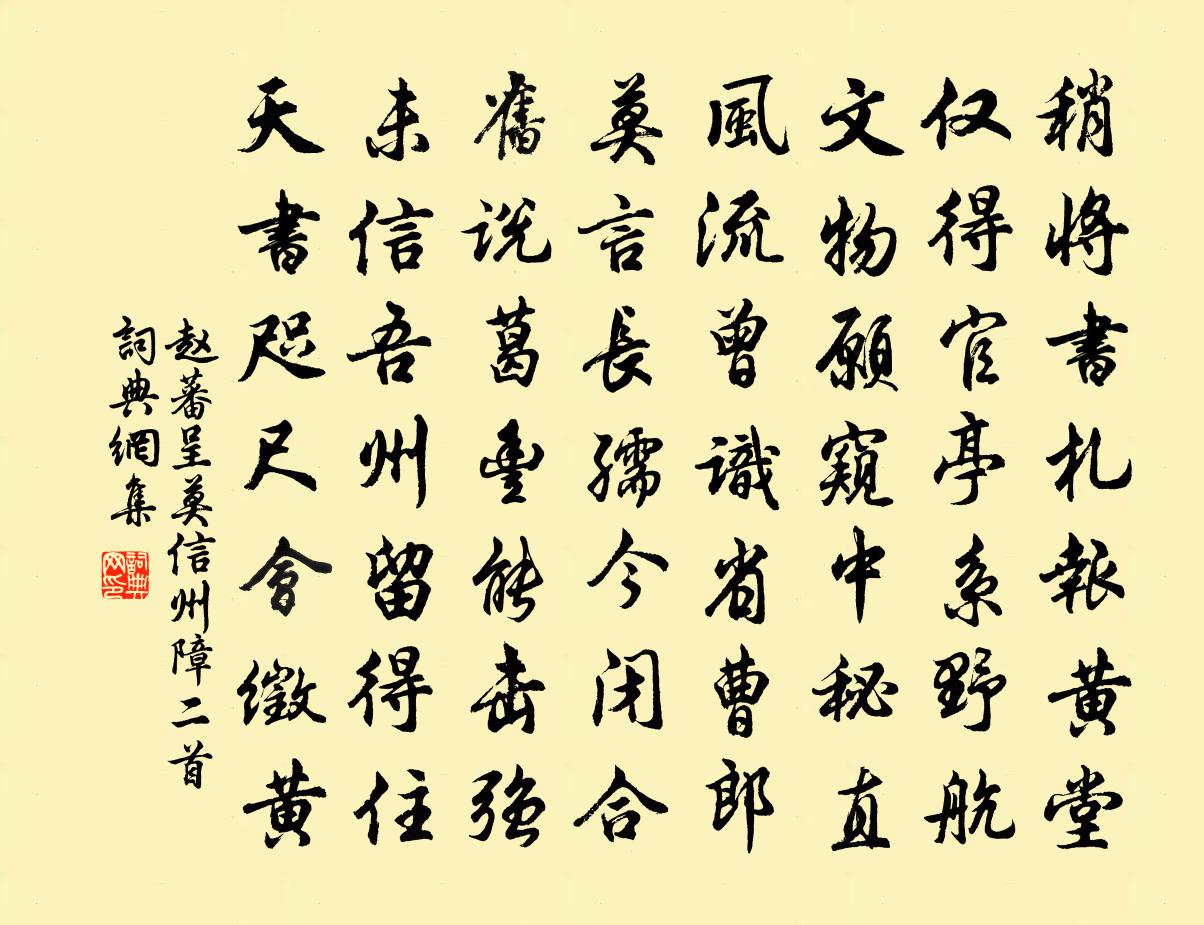 稍將書札報黃堂
仅得官亭系野航
文物願窺中秘直
風流曾識省曹郎
莫言長孺今閉合
舊説葛豐能击强
未信吾州留得住
天書咫尺會徵黃
赵蕃呈莫信州障二首
詞典網集
詞典网印